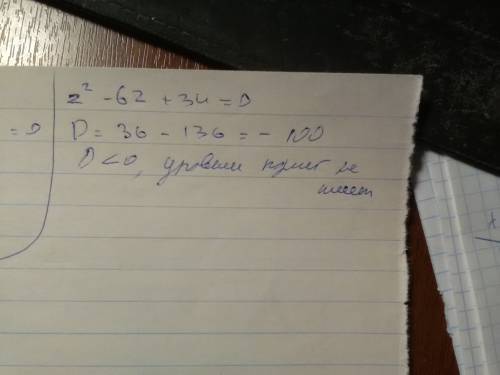 z² - 6z + 34 = 0
= 0
D = 36 - 136 = - 100
D < 0, уровнен корней не
имеет